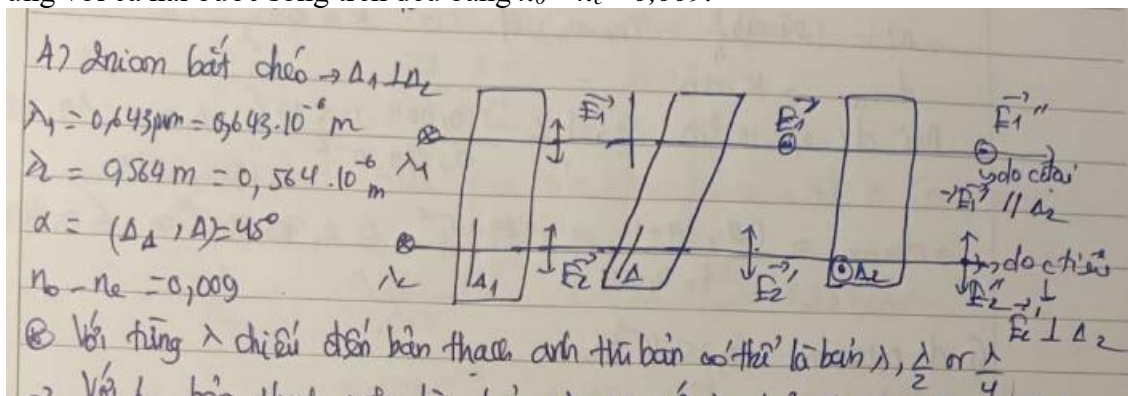 ứng với cả hai bước sóng trên đều bằng n₀ – nₑ = 0,009.
A) Nicon bắt chéo → Δ₁ ⊥ Δ₂
λ₁ = 0,643μm = 0,643.10⁻⁶ m
λ₂ = 0,564 m = 0,564.10⁻⁶ m
α = (Δ₁, Δ) = 45°
n₀ – nₑ = 0,009
λ₁ E₁→ E₁→' E₁→''
do cực đại
E₁→' // Δ₂
λ₂ Δ₁ E₂→ Δ E₂→' Δ₂ E₂→''
do cực tiểu
E₂→' ⊥ Δ₂
⊛ Với từng λ chiếu đến bản thạch anh thì bản có thể là bản λ, λ/2 or λ/4